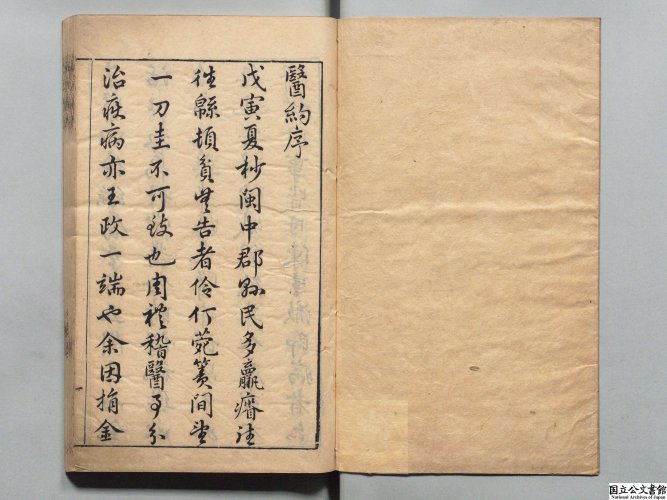 醫約序
戊寅夏杪閩中郡縣民多羸瘠往
往緜頓貧無告者伶仃菀簀間望
一刀圭不可致也周禮稽醫事分
治疾病亦王政一端也余因捐金
国立公文書館
National Archives of Japan